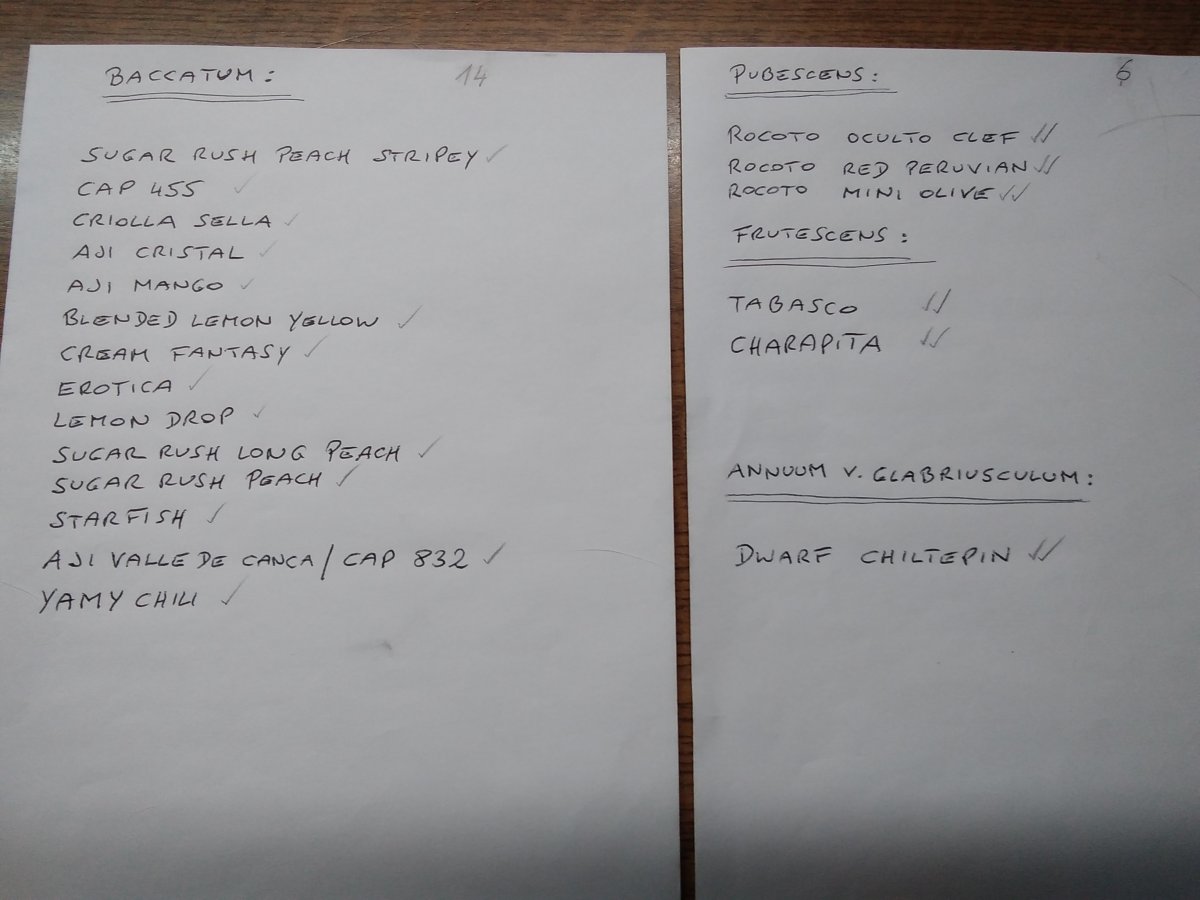 BACCATUM: 14
SUGAR RUSH PEACH STRIPEY ✓
CAP 455 ✓
CRIOLLA SELLA ✓
AJI CRISTAL ✓
AJI MANGO ✓
BLENDED LEMON YELLOW ✓
CREAM FANTASY ✓
EROTICA ✓
LEMON DROP ✓
SUGAR RUSH LONG PEACH ✓
SUGAR RUSH PEACH ✓
STARFISH ✓
AJI VALLE DE CANCA / CAP 832 ✓
YAMY CHILI ✓
PUBESCENS: 6
ROCOTO OCULTO CLEF ✓✓
ROCOTO RED PERUVIAN ✓✓
ROCOTO MINI OLIVE ✓✓
FRUTESCENS:
TABASCO ✓✓
CHARAPITA ✓✓
ANNUUM V. GLABRIUSCULUM:
DWARF CHILTEPIN ✓✓